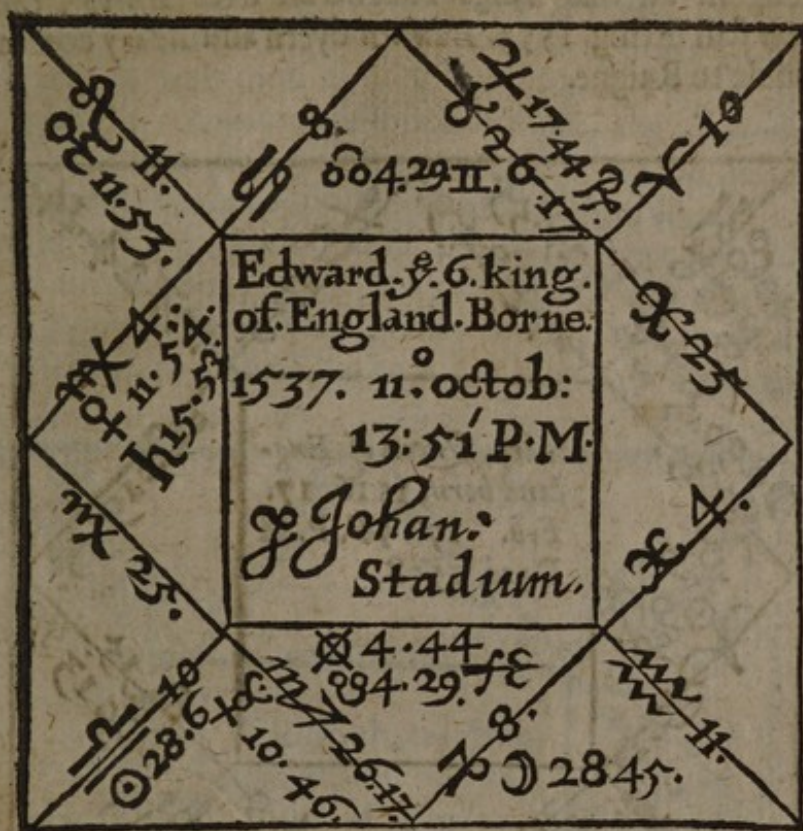 Edward. yͤ. 6. king.
of. England. Borne.
1537. 11.° octob:
13:51 P.M.
Johan:
Stadium.
♌ 11.
♂ 11.53.
♋ 8.
☋ 4.29 ♊.
♉ 26.17
♃ 17.44 ♈.
♈ 10
♓ 25
♓ 4.
♒ 11.
♑ 8.
☽ 28 45.
⊗ 4.44
☊ 4.29. ♐
♏ 26.17.
10.46.
♎ 10
☉ 28.6
♍ 25.
♍ 4.
♀ 11.54.
♄ 15.53.